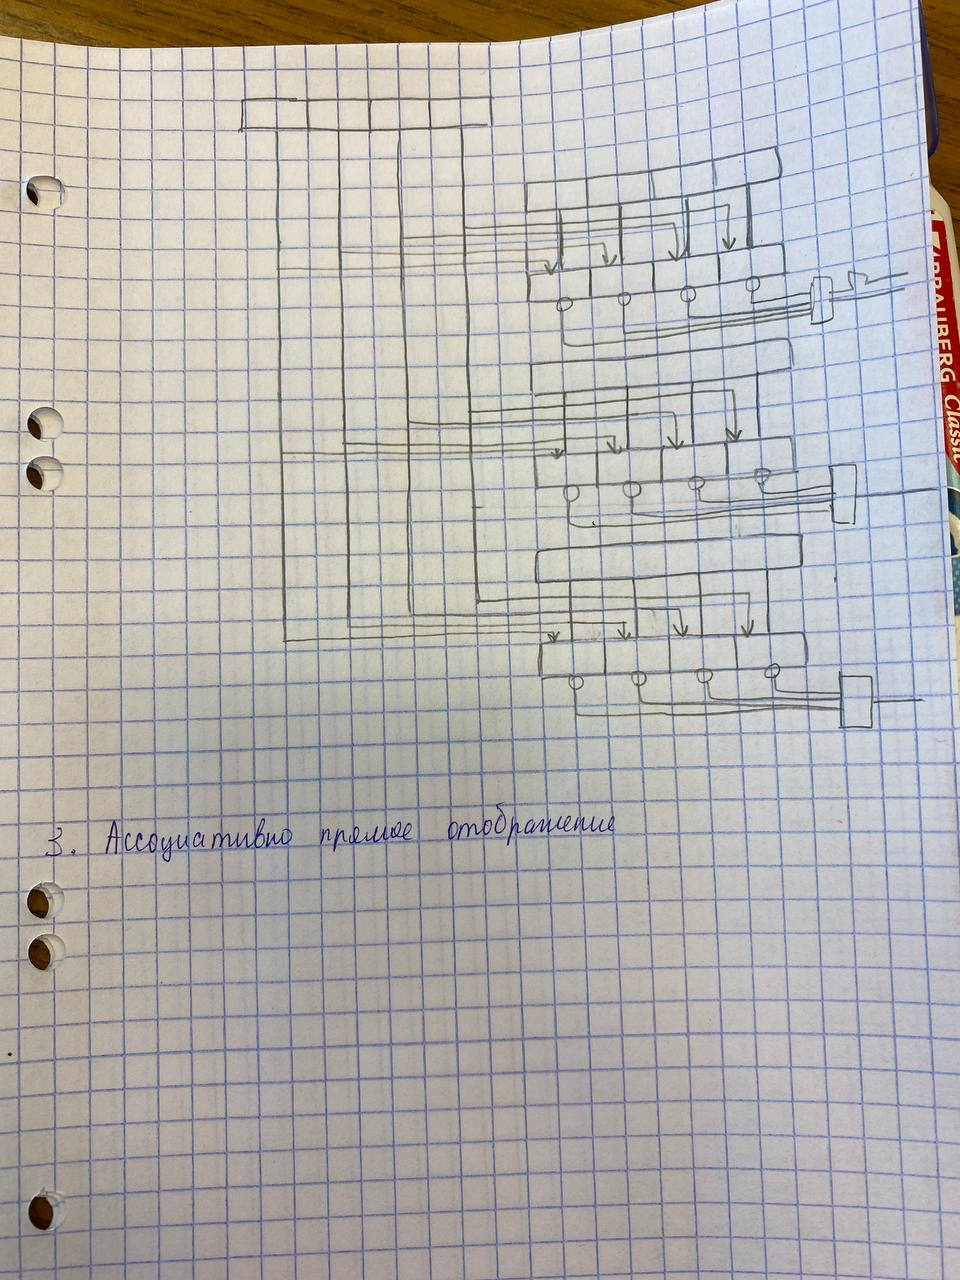 3. Ассоциативно прямое отображение
BRAUBERG Classic